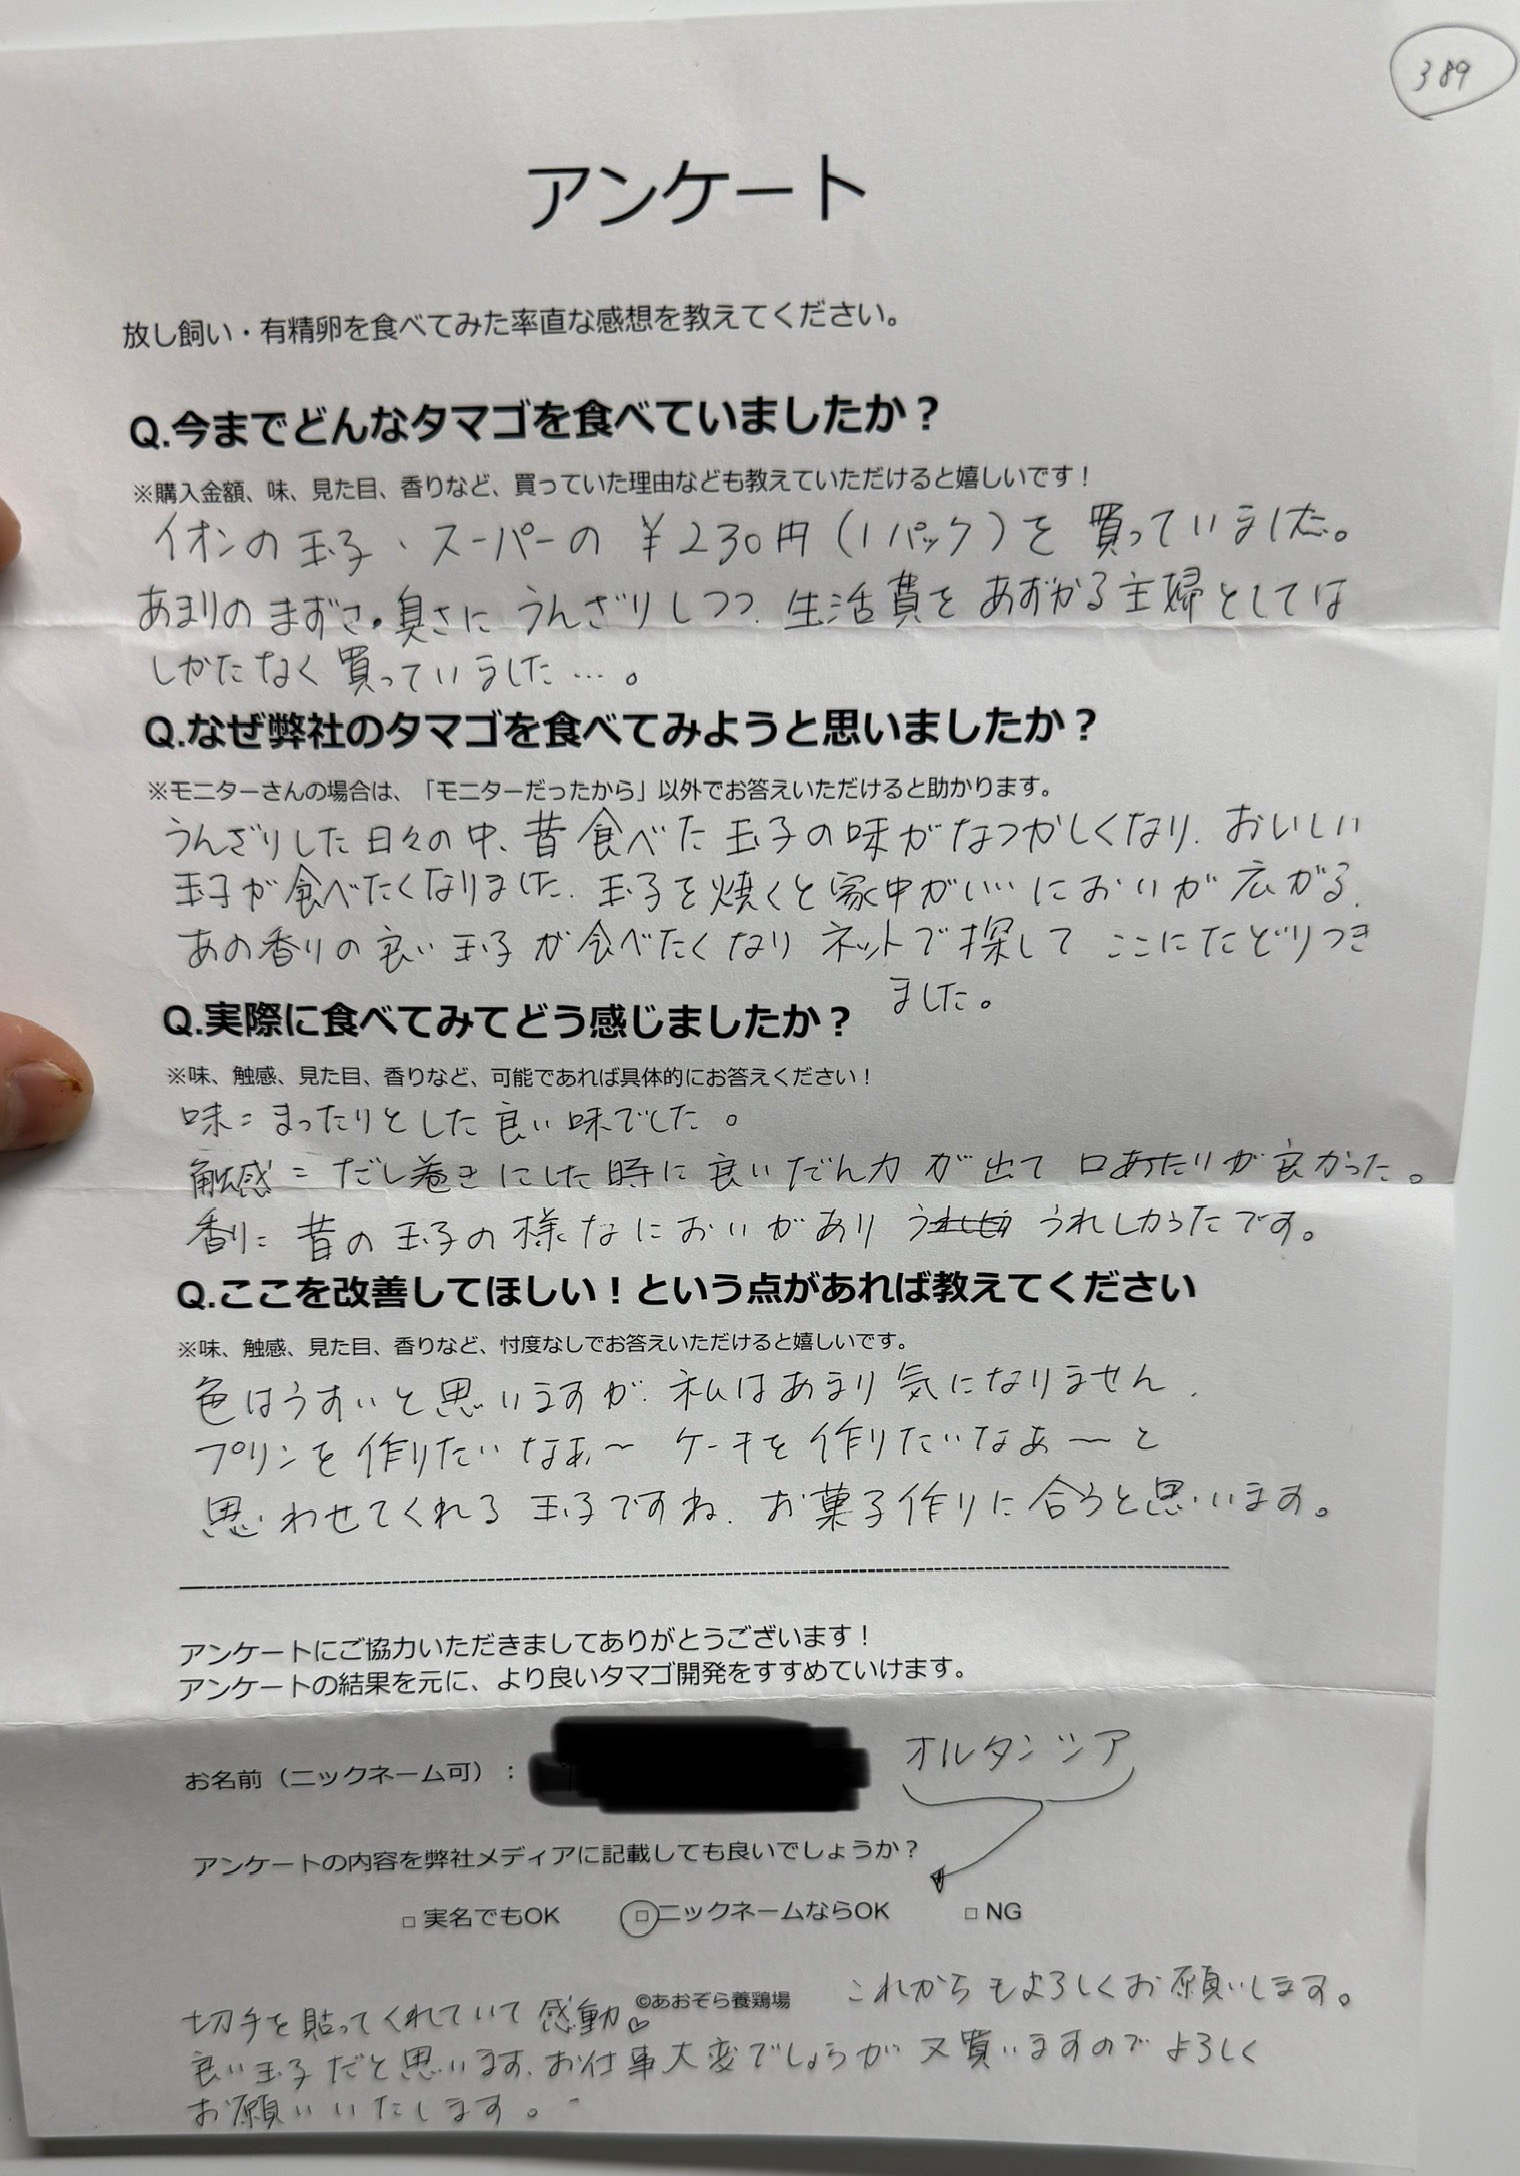 389
アンケート
放し飼い・有精卵を食べてみた率直な感想を教えてください。
Q.今までどんなタマゴを食べていましたか？
※購入金額、味、見た目、香りなど、買っていた理由なども教えていただけると嬉しいです！
イオンの玉子、スーパーの￥230円（1パック）を買っていました。
あまりのまずさ・臭さにうんざりしつつ、生活費をあずかる主婦としては
しかたなく買っていました…。
Q.なぜ弊社のタマゴを食べてみようと思いましたか？
※モニターさんの場合は、「モニターだったから」以外でお答えいただけると助かります。
うんざりした日々の中、昔食べた玉子の味がなつかしくなり、おいしい
玉子が食べたくなりました。玉子を焼くと家中がいいにおいが広がる、
あの香りの良い玉子が食べたくなりネットで探してここにたどりつき
ました。
Q.実際に食べてみてどう感じましたか？
※味、触感、見た目、香りなど、可能であれば具体的にお答えください！
味＝まったりとした良い味でした。
触感＝だし巻きにした時に良いだん力が出て口あたりが良かった。
香り＝昔の玉子の様なにおいがあり うれしかったです。
Q.ここを改善してほしい！という点があれば教えてください
※味、触感、見た目、香りなど、忖度なしでお答えいただけると嬉しいです。
色はうすいと思いますが、私はあまり気になりません、
プリンを作りたいなぁ〜 ケーキを作りたいなぁ〜と
思わせてくれる玉子ですね、お菓子作りに合うと思います。
アンケートにご協力いただきましてありがとうございます！
アンケートの結果を元に、より良いタマゴ開発をすすめていけます。
お名前（ニックネーム可）： オルタンシア
アンケートの内容を弊社メディアに記載しても良いでしょうか？
□ 実名でもOK □ニックネームならOK □ NG
©あおぞら養鶏場 これからもよろしくお願いします。
切手を貼ってくれていて感動♡
良い玉子だと思います、お仕事大変でしょうが又買いますのでよろしく
お願いいたします。